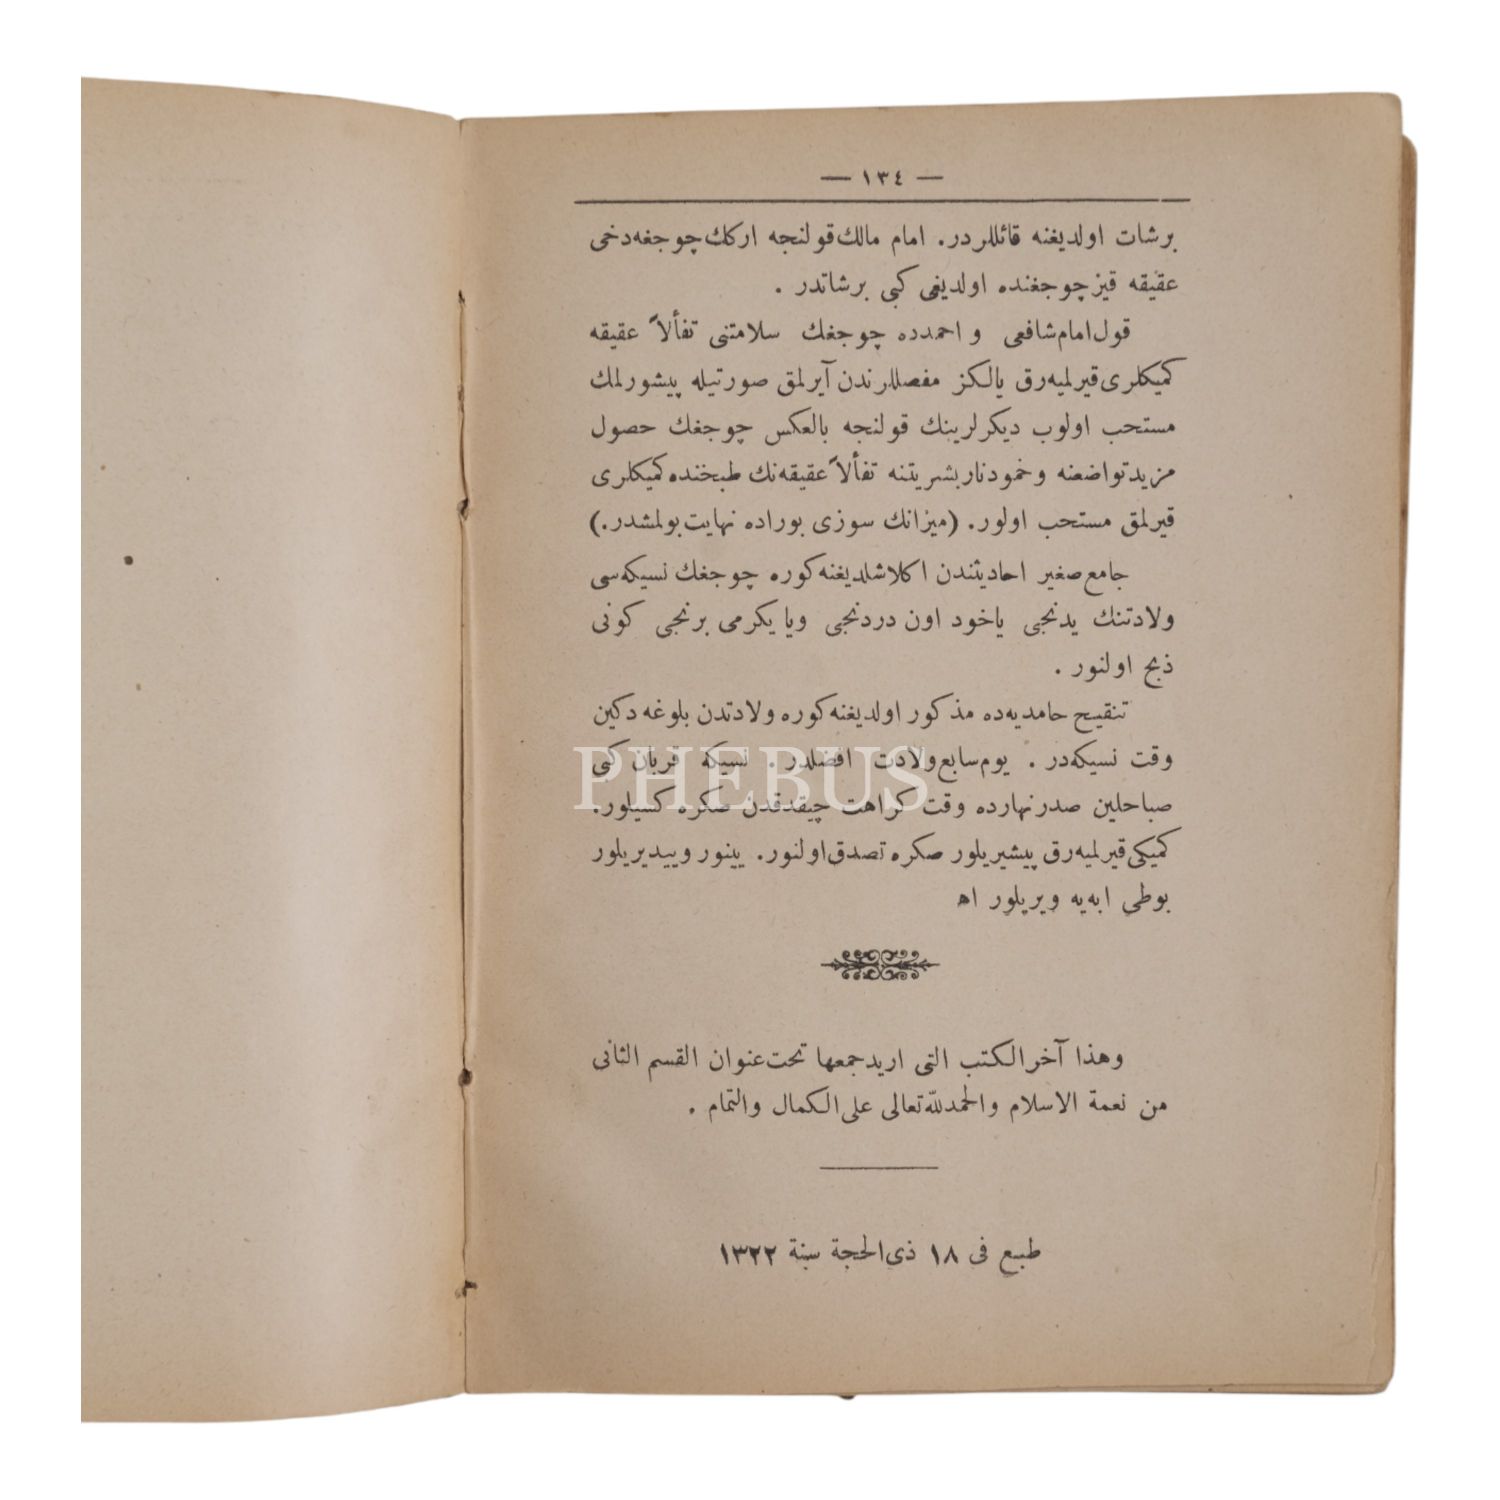 — ١٣٤ —
برشات اولديغنه قائللردر. امام مالك قولنجه اركك چوجغه دخى
عقيقه قيز چوجغنده اولديغى كبى برشاتدر .
قول امام شافعى و احمدده چوجغك سلامتنى تفألاً عقيقه
كميكلرى قيرلميه رق يالكز مفصللرندن آيرلمق صورتيله پيشورلمك
مستحب اولوب ديكرلرينك قولنجه بالعكس چوجغك حصول
مزيد تواضعنه و خمود نار بشريتنه تفألاً عقيقه نك طبخنده كميكلرى
قيرلمق مستحب اولور. (ميزانك سوزى بوراده نهايت بولمشدر.)
جامع صغير احاديثندن اكلاشلديغنه كوره چوجغك نسيكه سى
ولادتنك يدنجى ياخود اون دردنجى ويا يكرمى برنجى كونى
ذبح اولنور .
تنقيح حامديه ده مذكور اولديغنه كوره ولادتدن بلوغه دكين
وقت نسيكه در . يوم سابع ولادت افضلدر . نسيكه قربان كبى
صباحلين صدر نهارده وقت كراهت چيقدقدن صكره كسيلور.
كميكى قيرلميه رق پيشيريلور صكره تصدق اولنور. يينور و ييديريلور
بوطى ابه يه ويريلور اﻫ
وهذا آخر الكتب التى اريد جمعها تحت عنوان القسم الثانى
من نعمة الاسلام والحمدلله تعالى على الكمال والتمام .
طبع فى ١٨ ذى الحجة سنة ١٣٢٢
PHEBUS